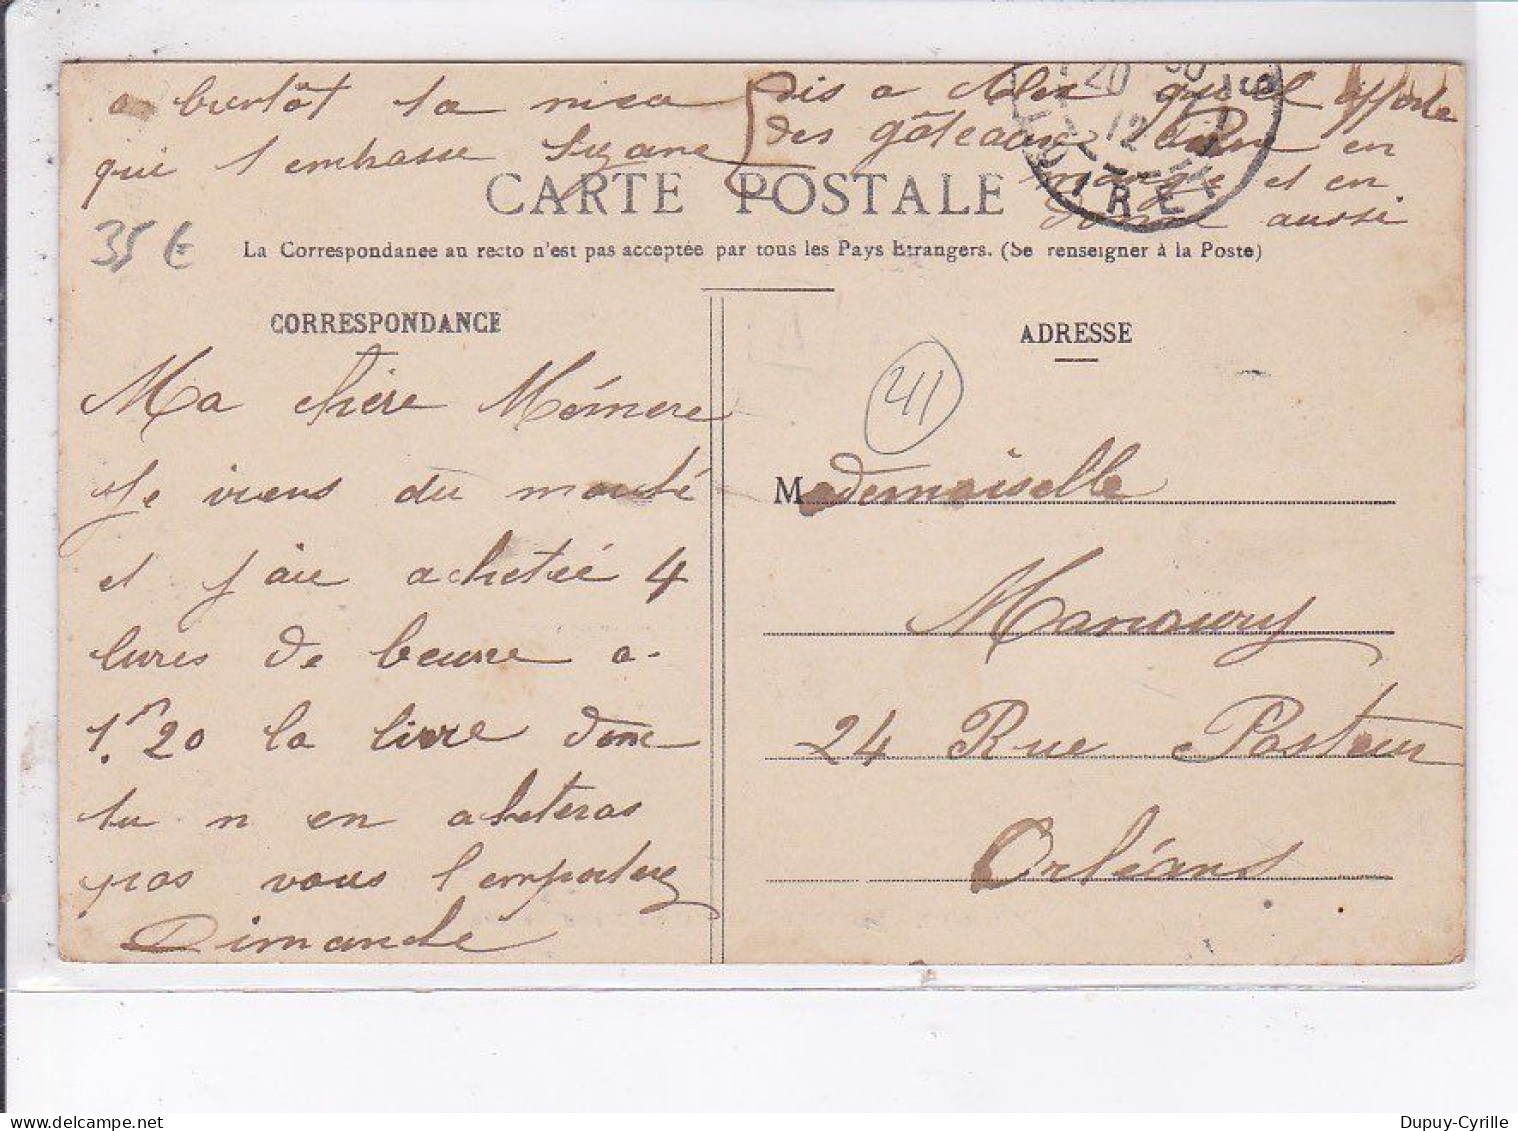 a bientôt ta mea
qui t embrasse Suzane
dis a quel apporte
des gâteaux Pierre en
mange et en
donne aussi
20 30
12
LOIRET
CARTE POSTALE
35 €
La Correspondance au recto n'est pas acceptée par tous les Pays Etrangers. (Se renseigner à la Poste)
CORRESPONDANCE
Ma chère Mémere
Je viens du marché
et j aie achetée 4
livres de beurre a
1.f 20 la livre donc
tu n en acheteras
pas vous l emporterez
Dimanche
ADRESSE
41
Mademoiselle
Manoury
24 Rue Pasteur
Orléans
Dupuy-Cyrille